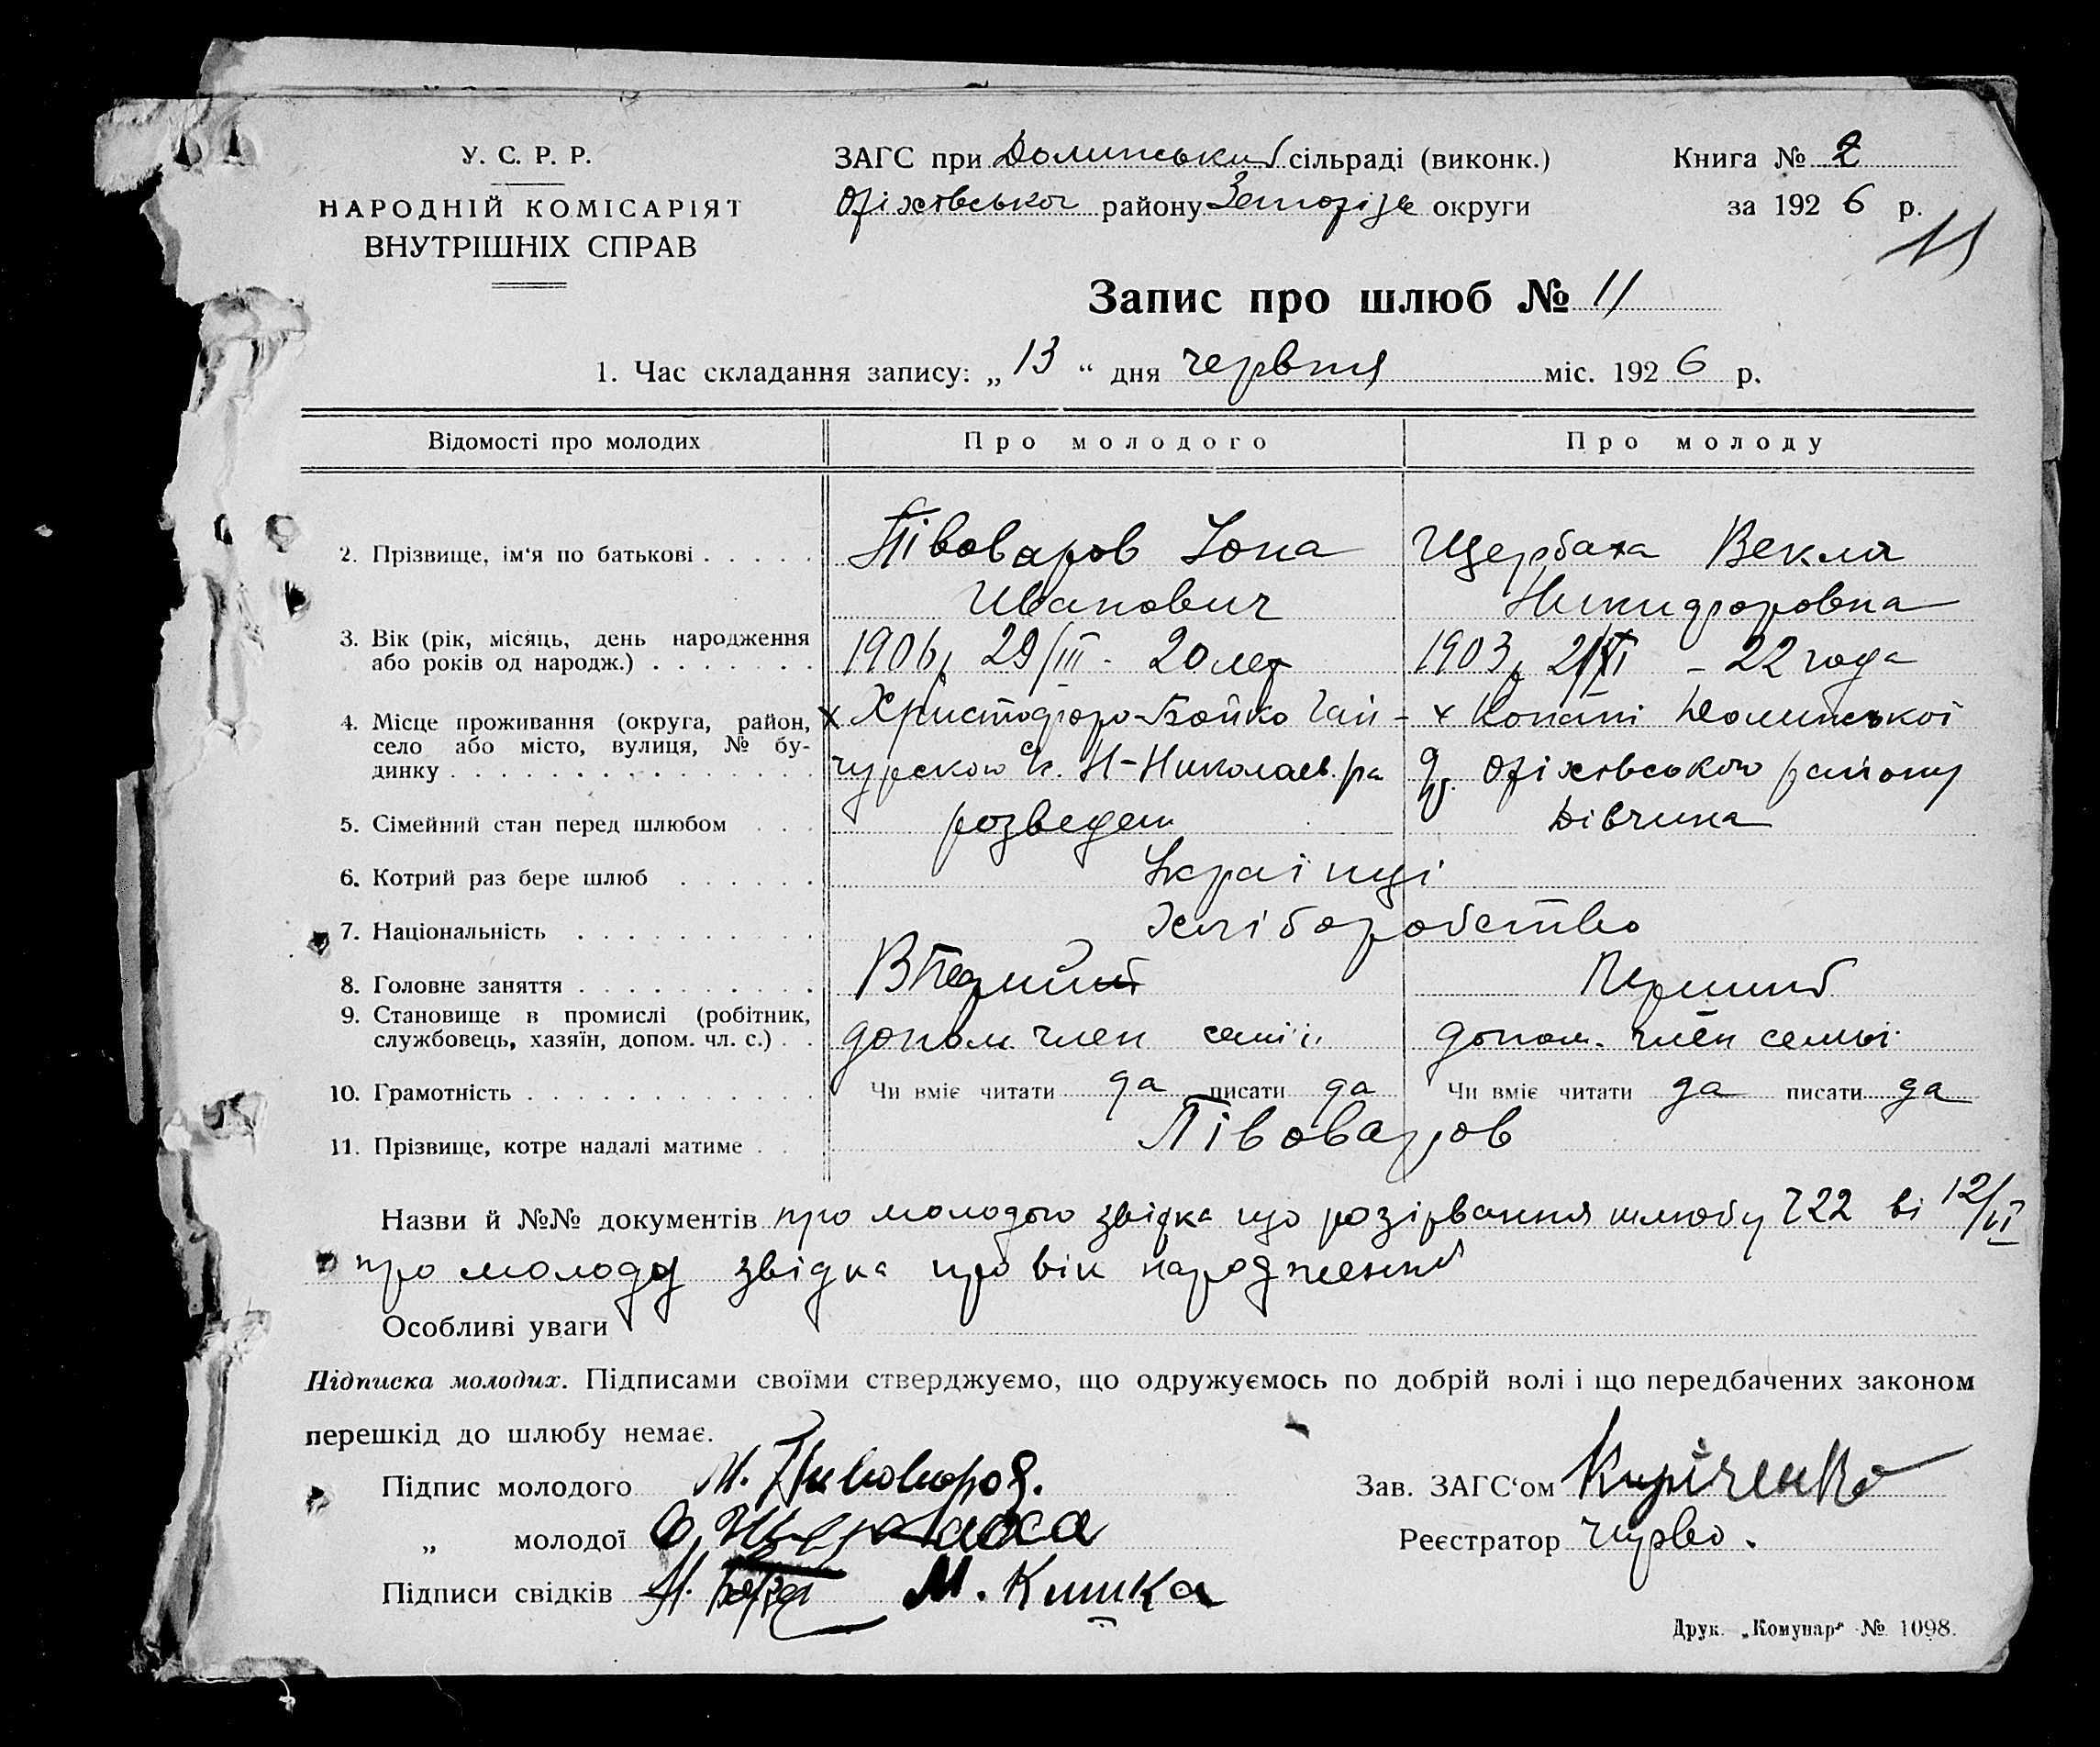 У. С. Р. Р.
НАРОДНІЙ КОМІСАРІЯТ
ВНУТРІШНІХ СПРАВ
ЗАГС при Долинській сільраді (виконк.)
Оріхівського району Запоріз округи
Книга № 2
за 1926 р.
Запис про шлюб № 11
1. Час складання запису: „13“ дня червня міс. 1926 р.
Відомості про молодих Про молодого Про молоду
2. Прізвище, ім'я по батькові Півоваров Іона Щербаха Векла
Иванович Никифоровна
3. Вік (рік, місяць, день народження
або років од народж.) 1906 р 29/III - 20 лет 1903 р - 22 года
4. Місце проживання (округа, район, х Християфоро-Бойко Гай- х Копані Долинської
село або місто, вулиця, № бу- чурского Н-Николаев. ра Оріхівського району
динку
5. Сімейний стан перед шлюбом розведен Дівчина
6. Котрий раз бере шлюб Украінці
7. Національність Хліборобство
8. Головне заняття Перший
9. Становище в промислі (робітник,
службовець, хазяїн, допом. чл. с.) допом. член семії допом. член семьі
10. Грамотність Чи вміє читати да писати да Чи вміє читати да писати да
11. Прізвище, котре надалі матиме Півоваров
Назви й №№ документів про молодого звідка що розірвання шлюбу 722 ві 12/VI
про молоду звідка про вік народження
Особливі уваги
Підписка молодих. Підписами своїми стверджуємо, що одружуємось по добрій волі і що передбачених законом
перешкід до шлюбу немає.
Підпис молодого Зав. ЗАГС‘ом Кириченко
„ молодої Реєстратор
Підписи свідків М. Кишка
Друк. „Комунар“ № 1098.